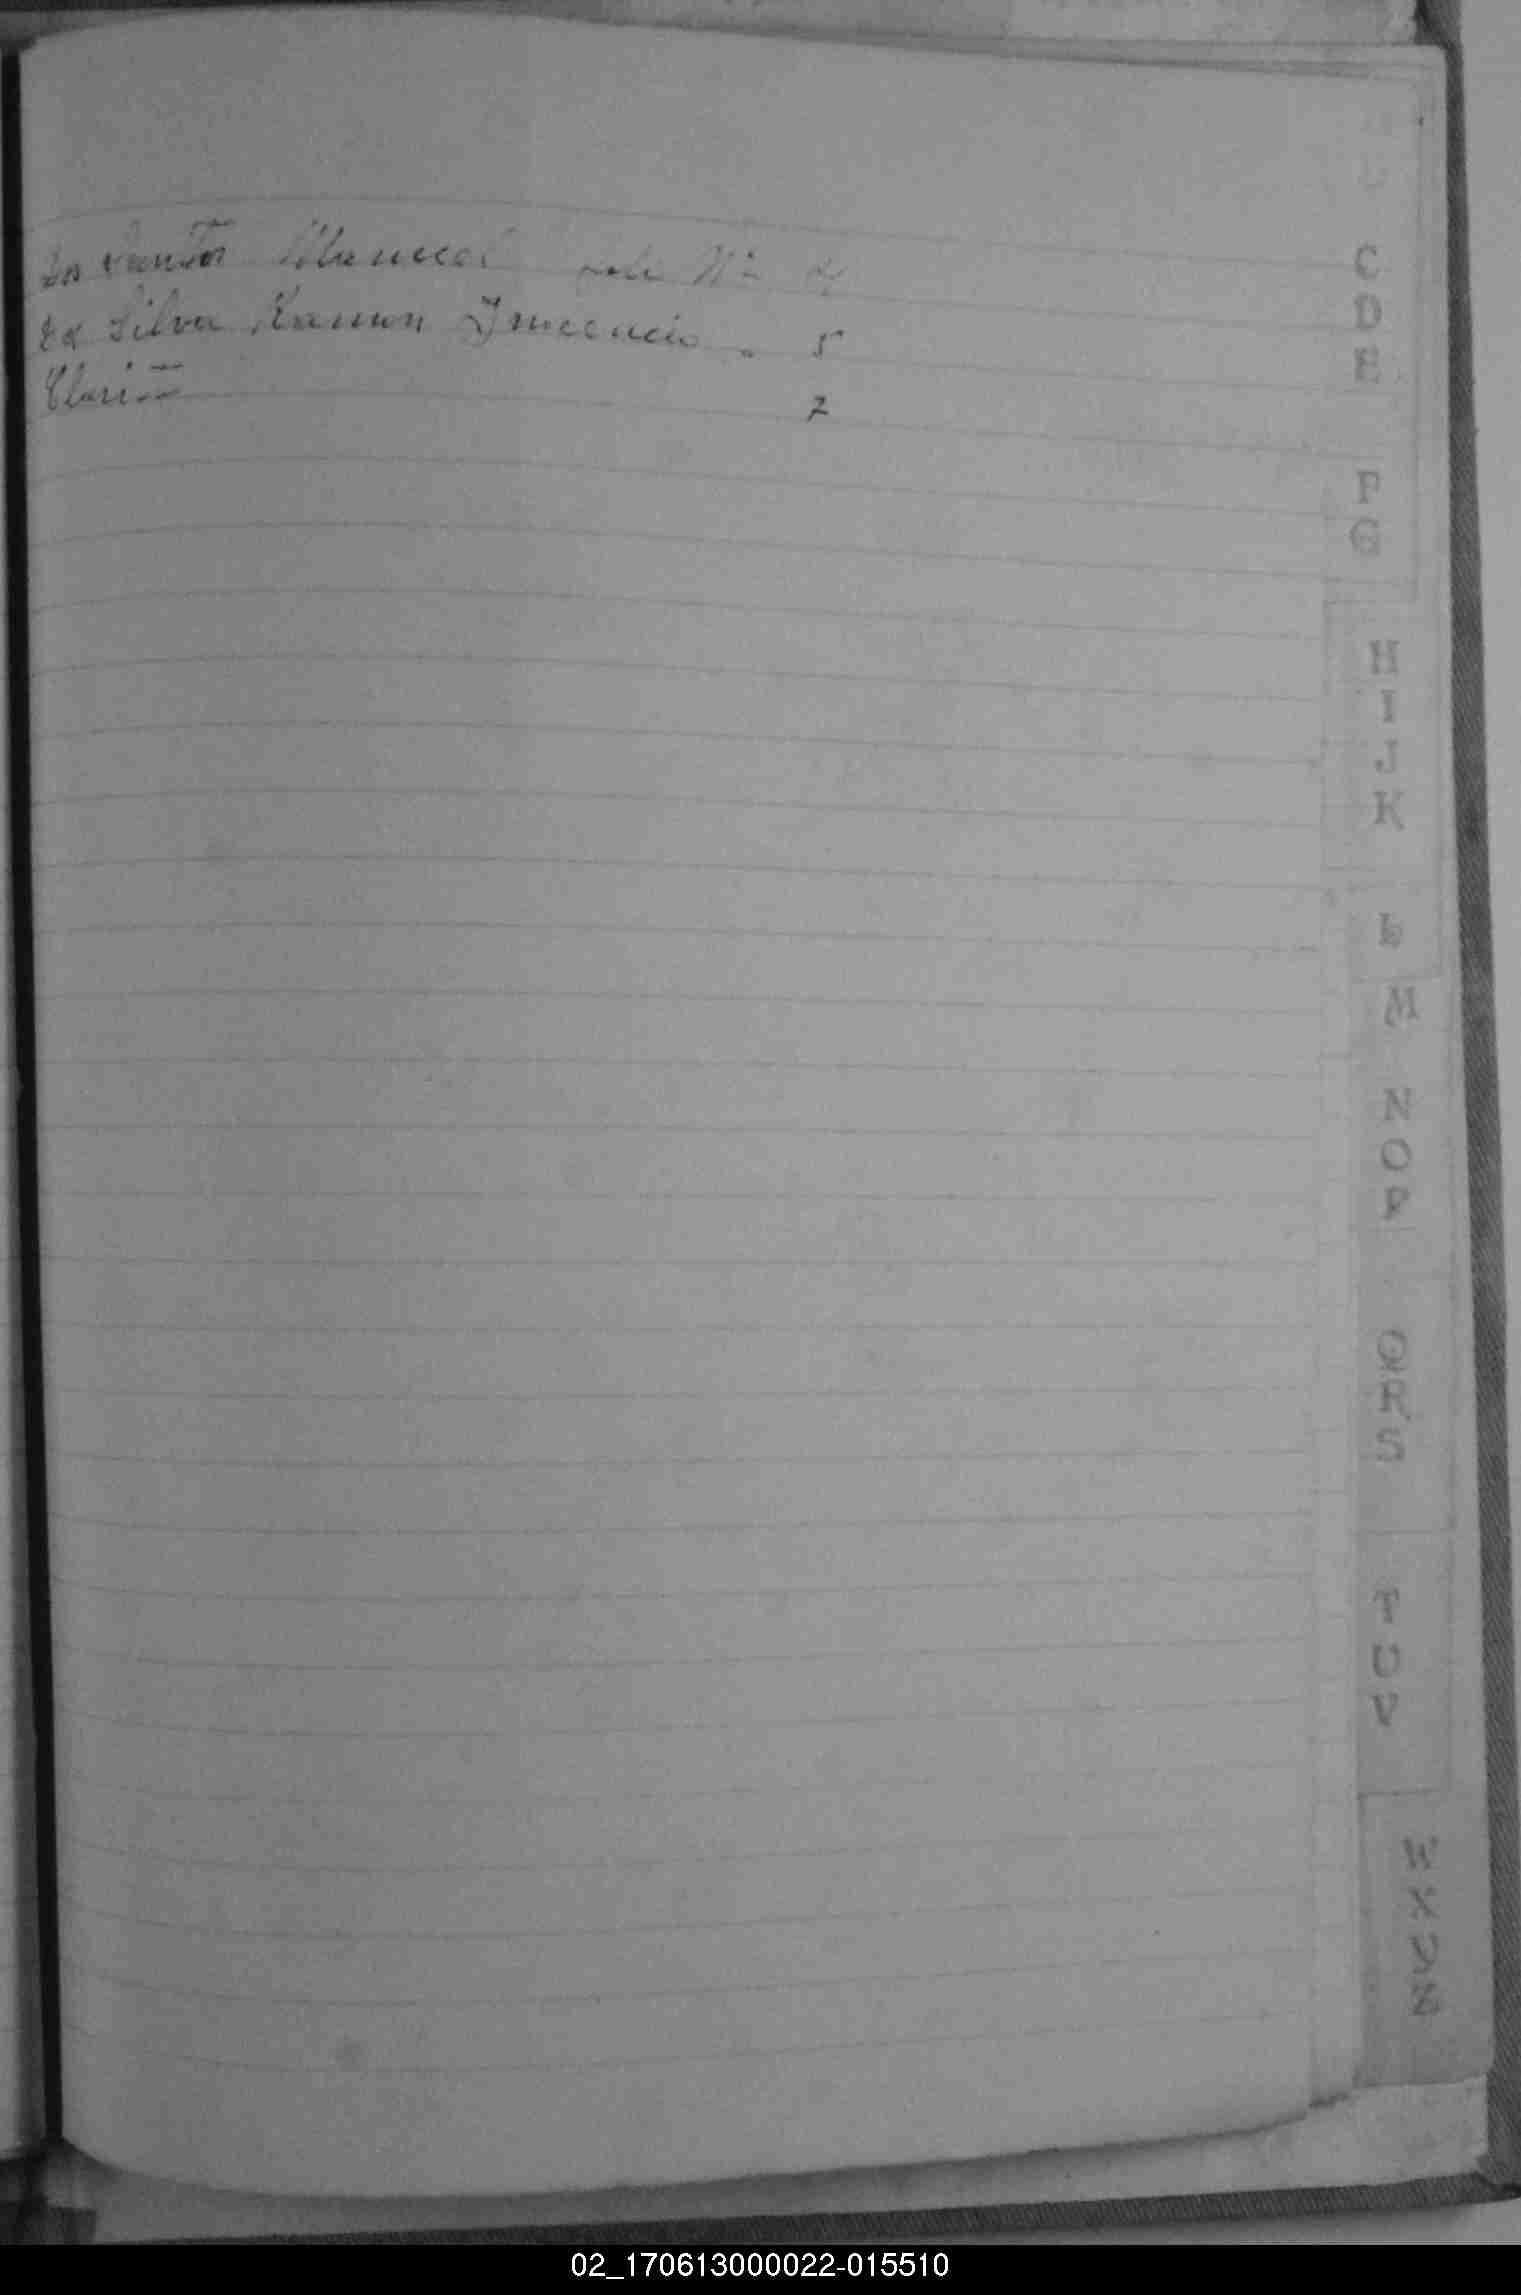 dos Santos Manuel folio Nº 2
da Silva Ramon Inocencio " 5
7
C
D
E
F
G
H
I
J
K
L
M
N
O
P
Q
R
S
T
U
V
W
X
Y
Z
02_170613000022-015510